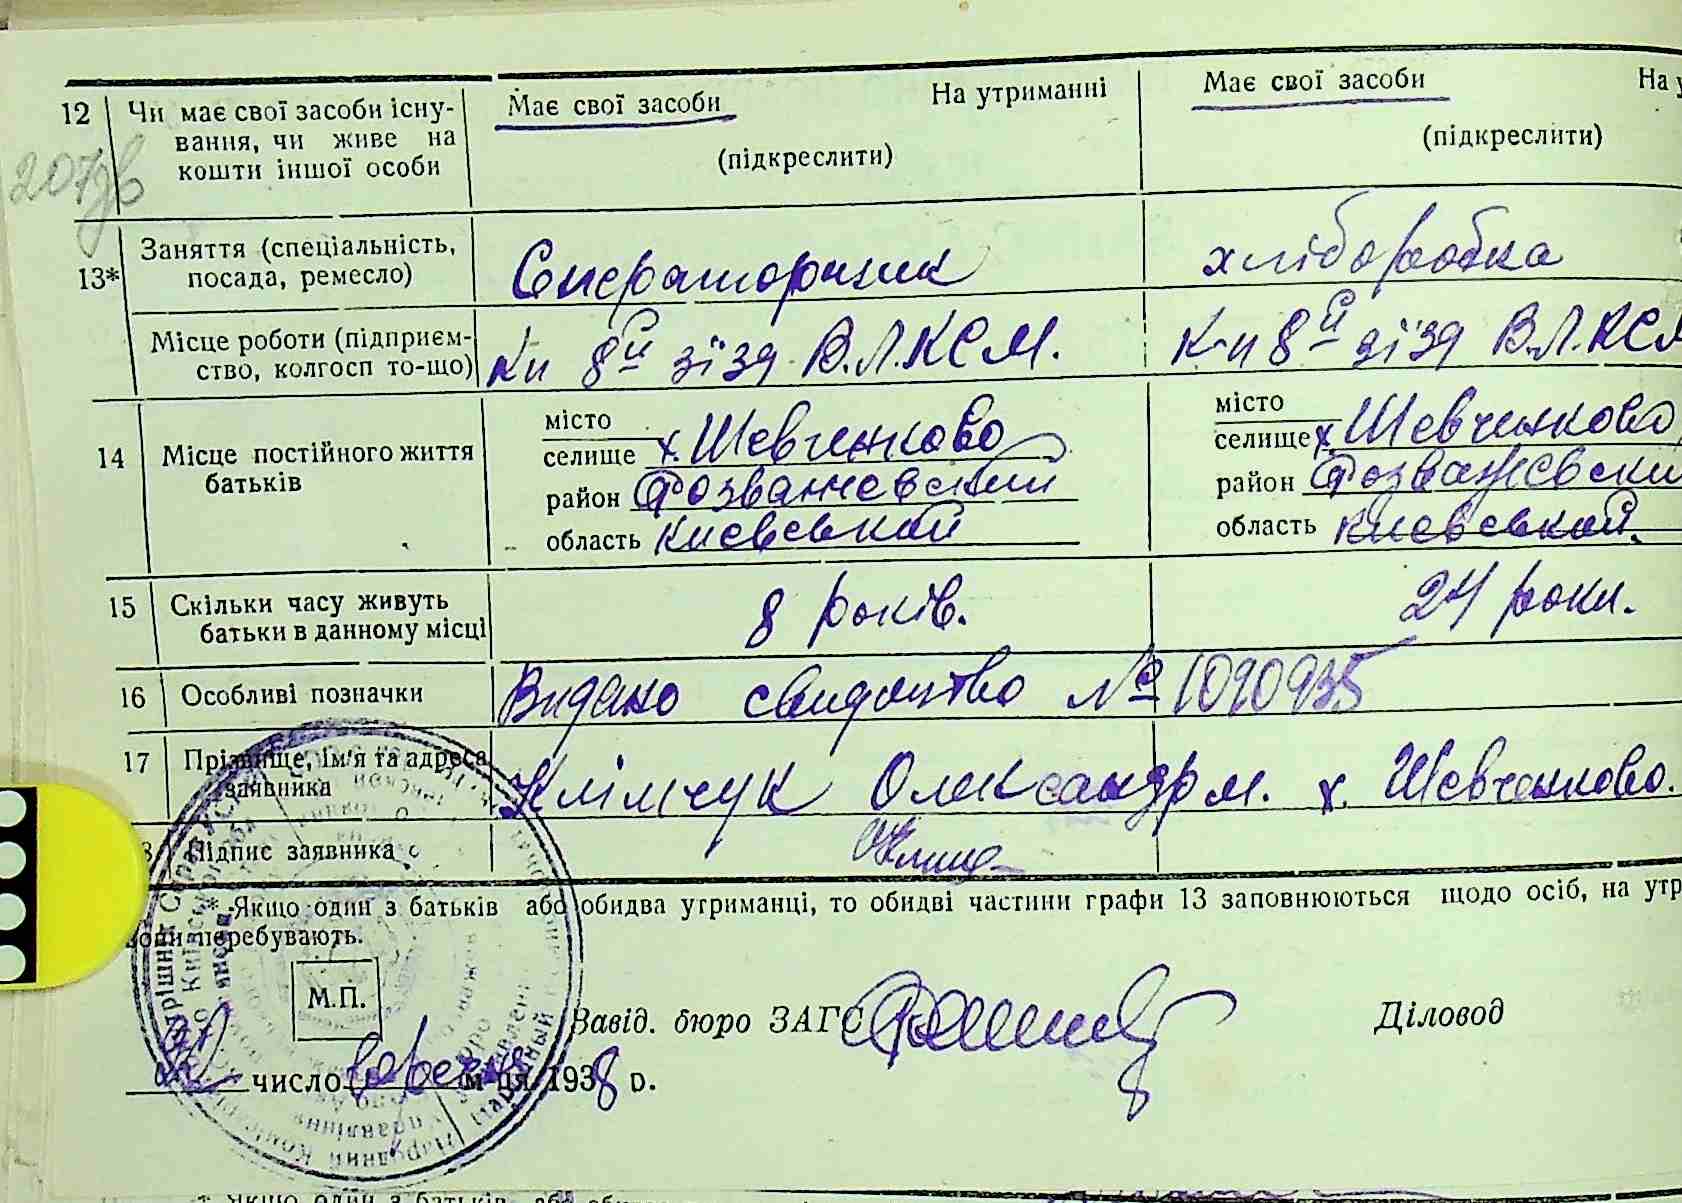 12 Чи має свої засоби існу-
вання, чи живе на
кошти іншої особи
Має свої засоби На утриманні
(підкреслити)
Має свої засоби На у
(підкреслити)
207
13* Заняття (спеціальність,
посада, ремесло)
хліборобка
Місце роботи (підприєм-
ство, колгосп то-що)
Кп 8й зїзд В.Л.КСМ.
К-п 8й зїзд В.Л.КСМ
14 Місце постійного життя
батьків
місто
селище х. Шевченково
район Розважевский
область Киевськой
місто
селище х Шевченково
район Розважевский
область Киевськой.
15 Скільки часу живуть
батьки в данному місці
8 років.
24 роки.
16 Особливі позначки
Видано свидоцтво № 1090935
17 Прізвище, ім'я та адреса
заявника
Клімчук Олександр м. х. Шевченково.
Підпис заявника
* Якщо один з батьків або обидва утриманці, то обидві частини графи 13 заповнюються щодо осіб, на утр
вони перебувають.
М.П.
Завід. бюро ЗАГС
Діловод
число м-ця 1938 р.
* Якщо один з батьків або